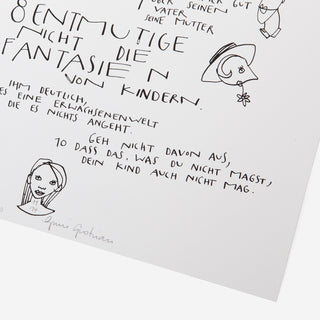 MMER GUT
ÜBER SEINEN
VATER
SEINE MUTTER
8 ENTMUTIGE
NICHT DIE
FANTASIE N
VON KINDERN.
IHM DEUTLICH,
ES EINE ERWACHSENENWELT
DIE ES NICHTS ANGEHT.
GEH NICHT DAVON AUS,
10 DASS DAS, WAS DU NICHT MAGST,
DEIN KIND AUCH NICHT MAG.